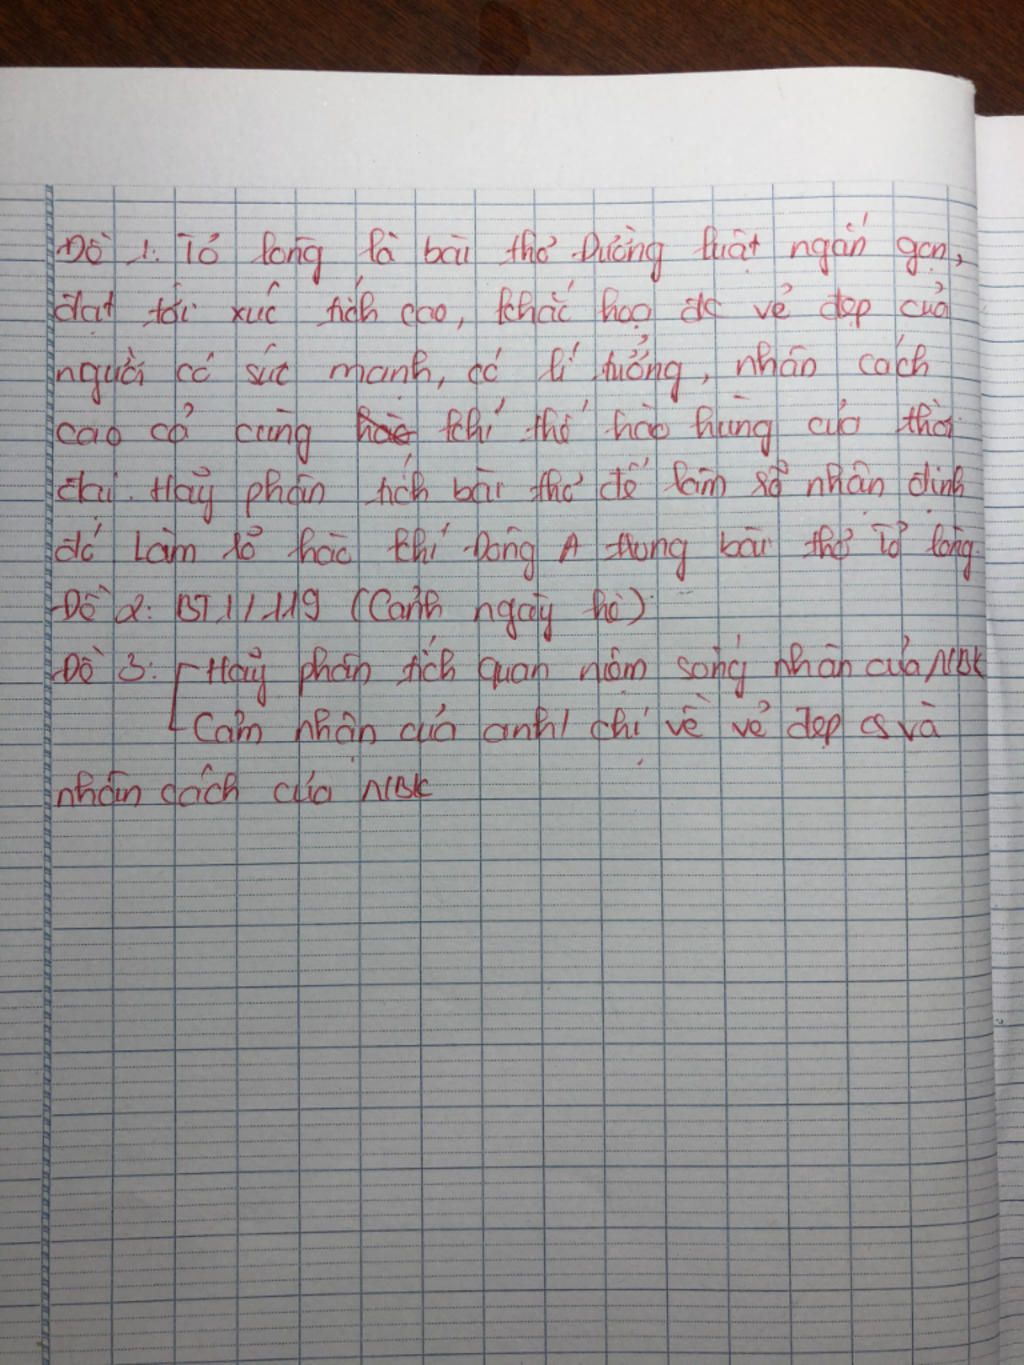 Đề 1: Tỏ lòng là bài thơ Đường luật ngắn gọn,
đạt tới xúc tích cao, khắc hoạ đc vẻ đẹp của
người có sức mạnh, có lí tưởng, nhân cách
cao cả cùng khí thế hào hùng của thời
đại. Hãy phân tích bài thơ để làm sổ nhận định
đó Làm tỏ hào khí Đông A trong bài thơ Tỏ lòng.
Đề 2: BT1/119 (Cảnh ngày hè)
Đề 3: Hãy phân tích quan niệm sống nhàn của NBK
Cảm nhận của anh/ chị về vẻ đẹp cs và
nhân cách của NBK